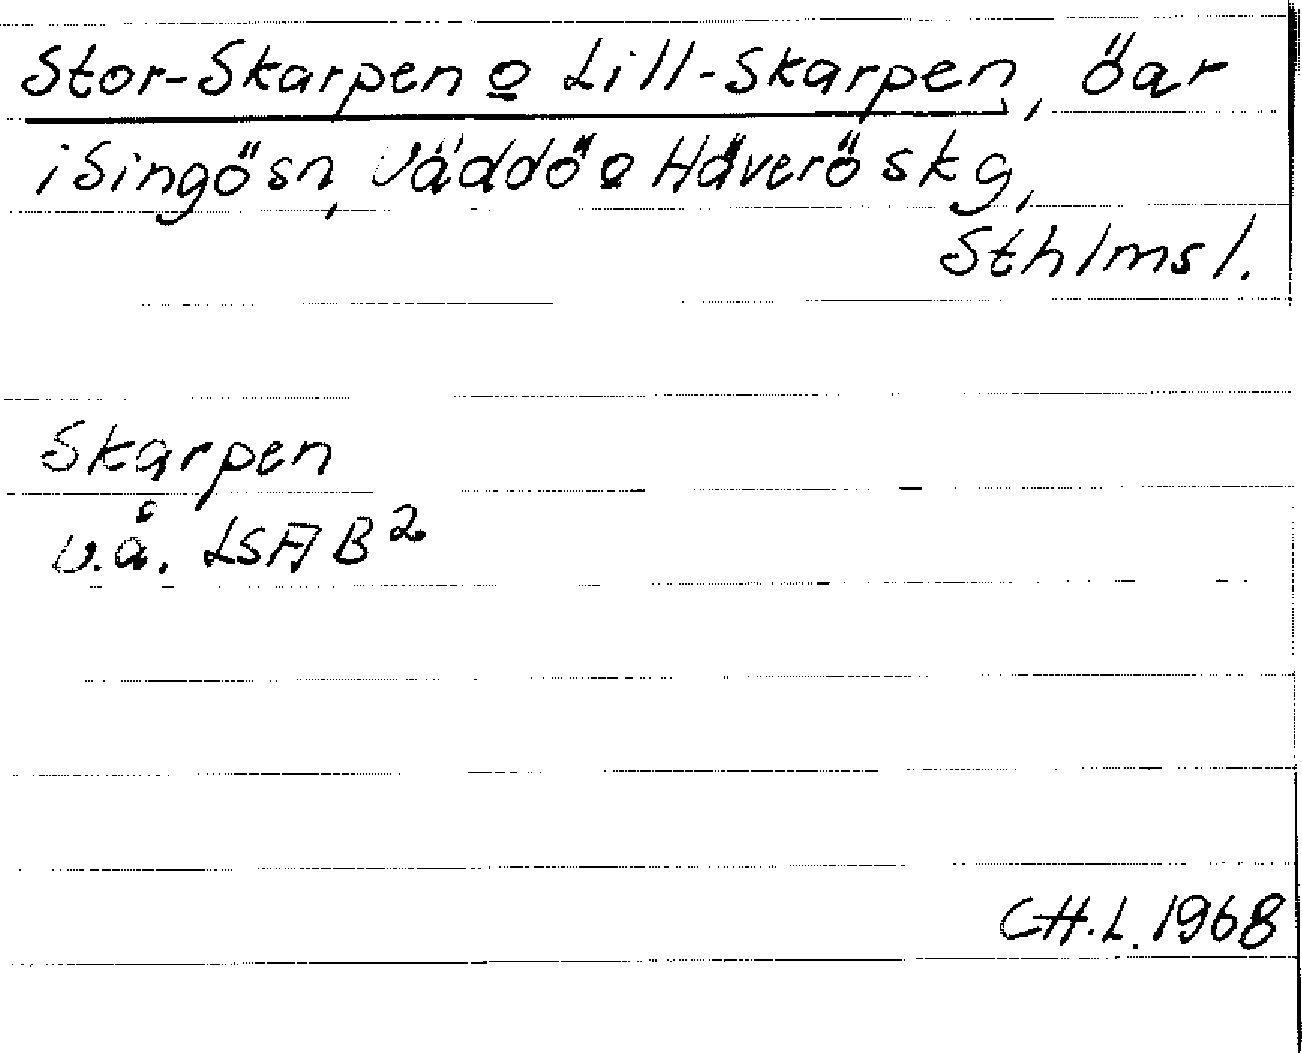 Stor-Skarpen o Lill-Skarpen, öar
i Singö sn, Väddö o Häverö skg,
Sthlms l.
Skarpen
u.å. LSA B2
CH.L. 1968